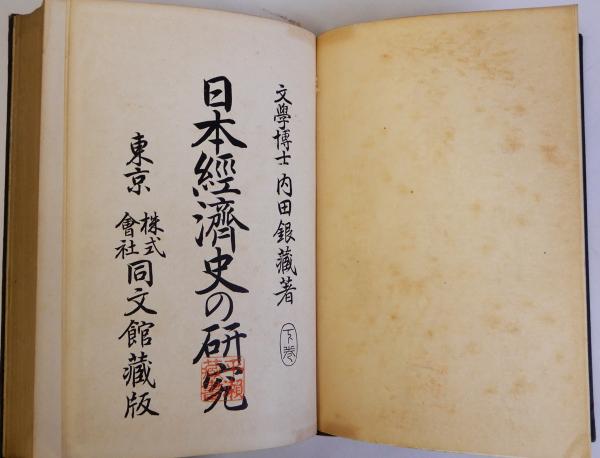 文學博士 内田銀藏著
下卷
日本經濟史の研究
東京 株式會社 同文館藏版